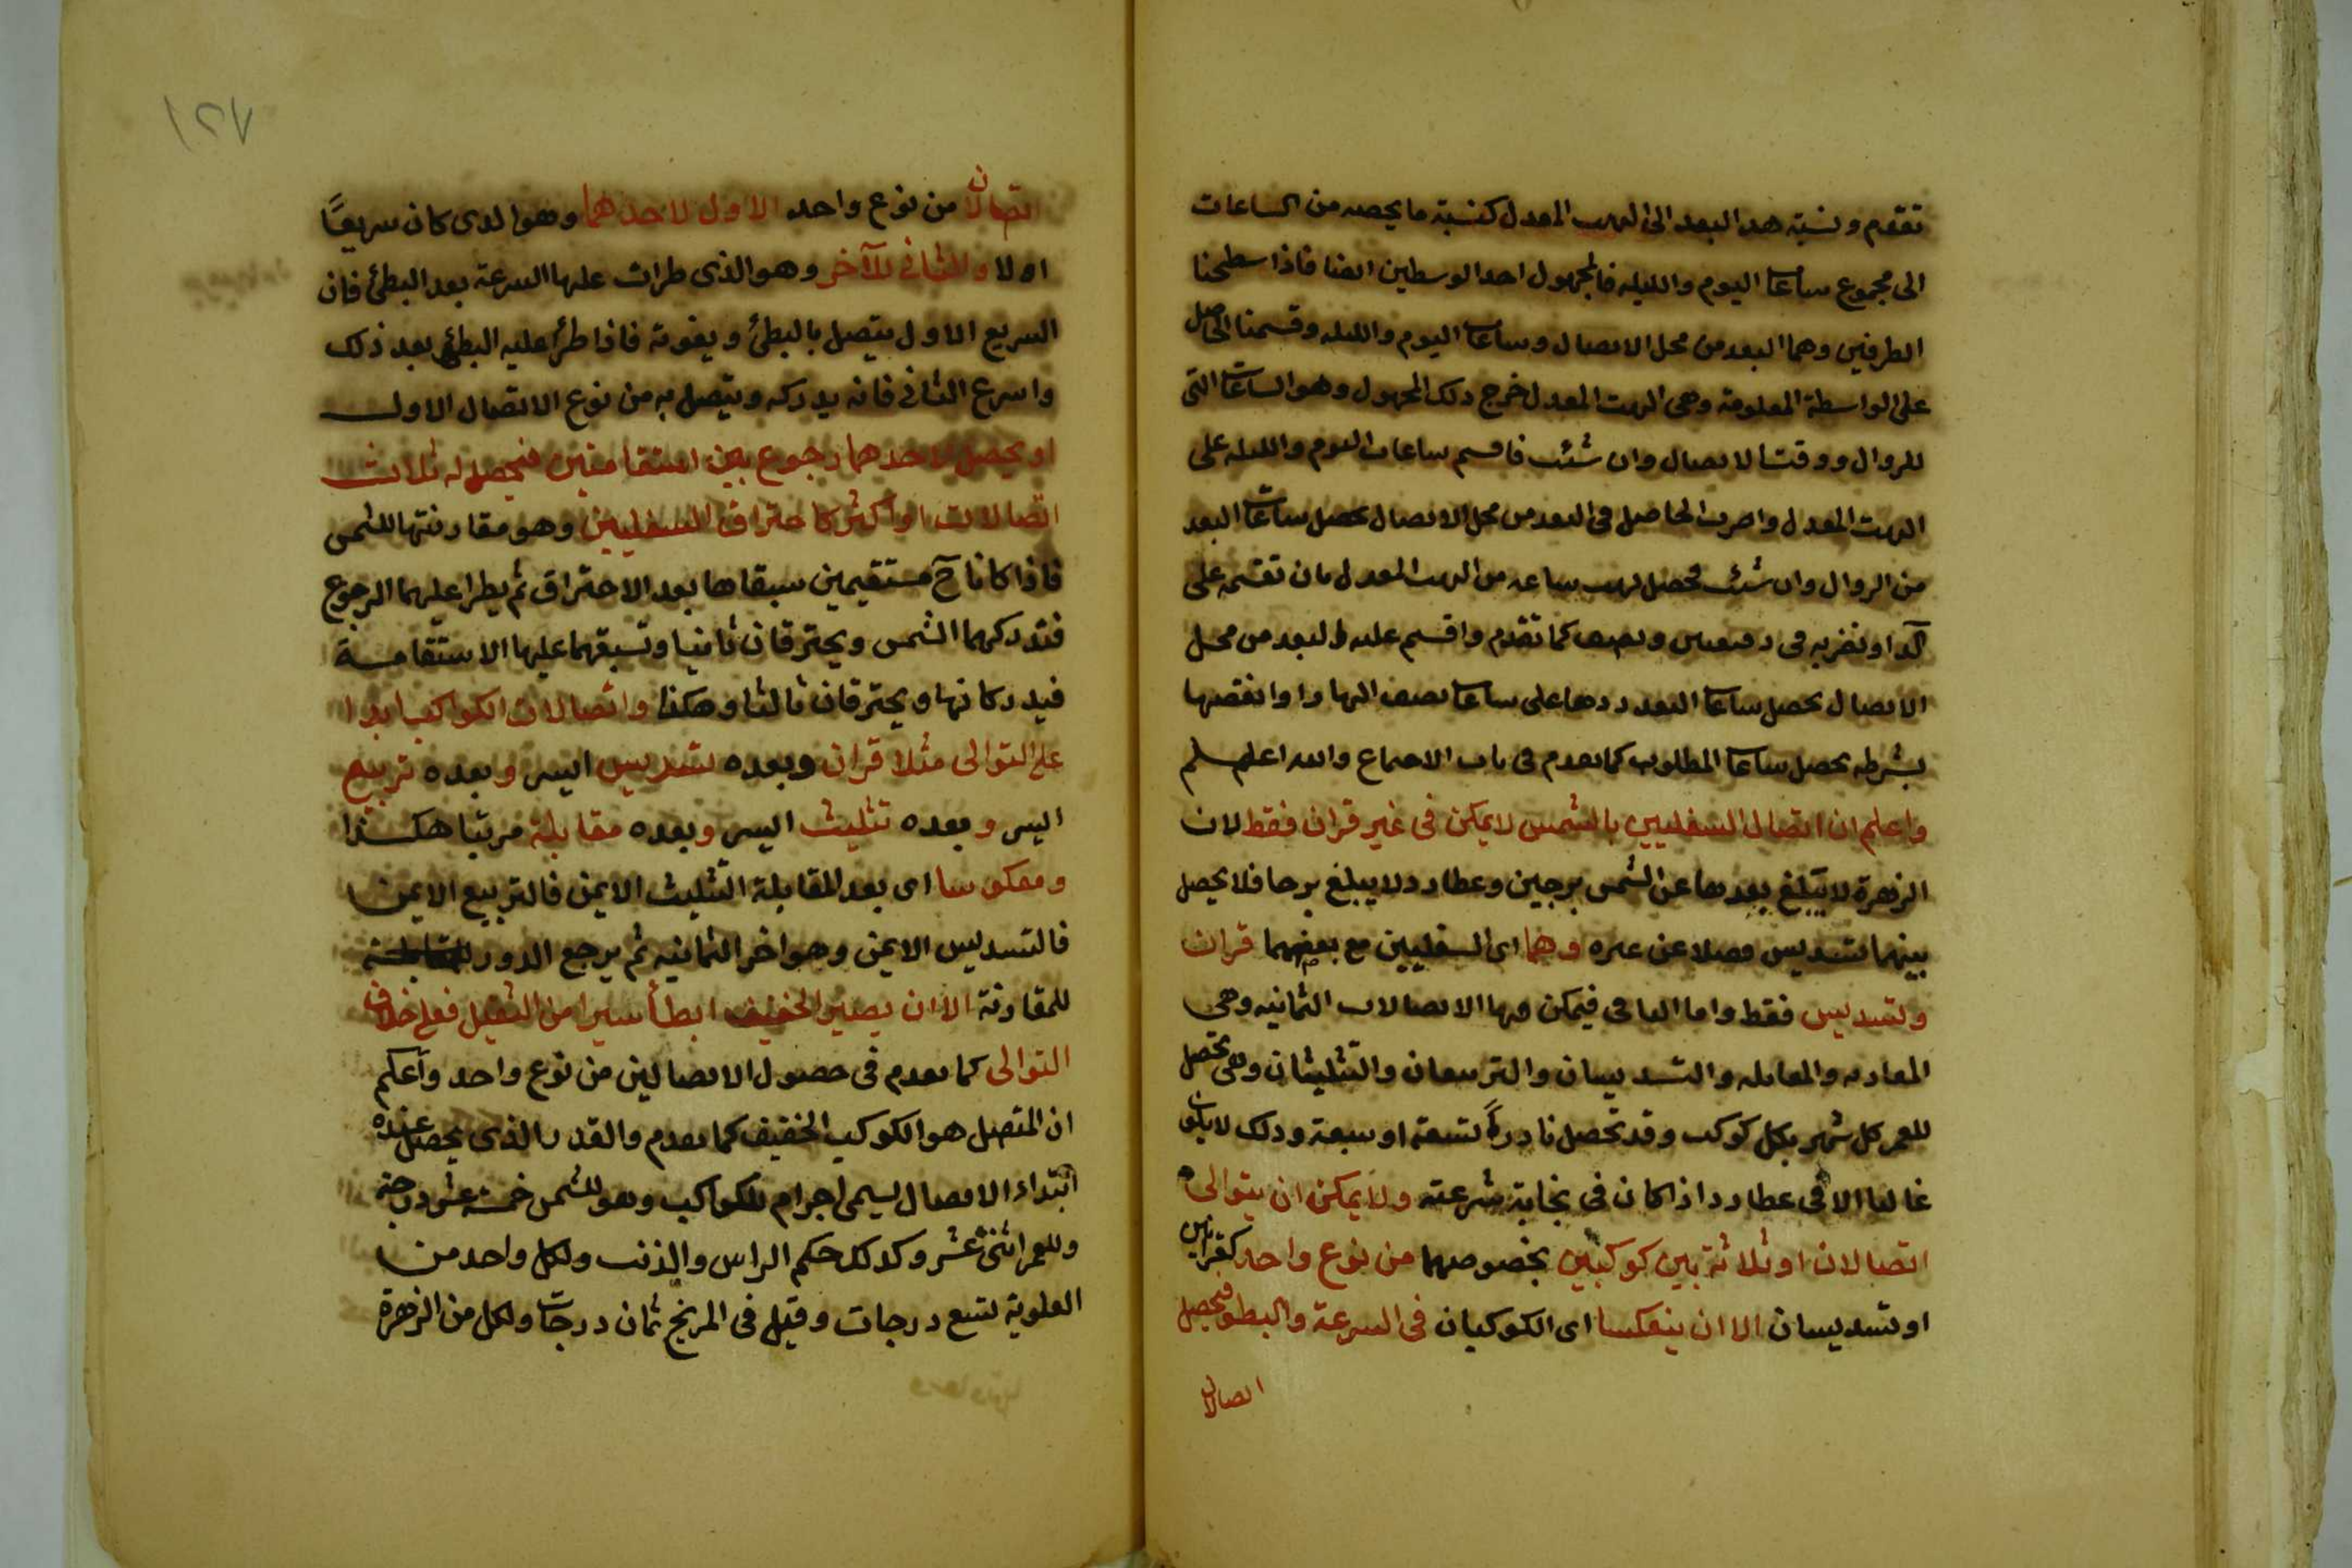 تقدم ونسبة هدا البعد الى البهت المعدل كنسبة ما يحصه من الساعات
الى مجموع ساعات اليوم والليله فالمجهول احد الوسطين ايضا فاذا سطحنا
الطرفين وهما البعد من محل الاتصال وساعات اليوم والليله وقسمنا الحاصل
على الواسطة المعلومة وهى البهت المعدل خرج دلك المجهول وهو الساعات التى
للزوال ووقت الاتصال وان شئت فاقسم ساعات اليوم والليله على
البهت المعدل واضرب الحاصل فى البعد من محل الاتصال يحصل ساعات البعد
من الزوال وان شئت فحصل بهت ساعه من البهت المعدل بان تقسمه على
كد او تضربه فى دقيقتين ونصف كما تقدم واقسم عليه البعد من محل
الاتصال يحصل ساعات البعد زدها على ساعات نصف النهار او انقصها
بشرطه يحصل ساعات المطلوب كما تقدم فى باب الاجتماع والله اعلم
واعلم ان اتصال السفليين بالشمس لا يمكن فى غير قران فقط لان
الزهرة لا يبلغ بعدها عن الشمس برجين وعطارد لا يبلغ برجا فلا يحصل
بينهما تسديس فضلا عن غيره وهما اى السفليين مع بعضهما قران
وتسديس فقط واما الباقى فيمكن فيها الاتصالات الثمانيه وهى
المقارنه والمقابله والتسديسان والتربيعان والتثليثان وهى تحصل
للقمر كل شهر بكل كوكب وقد تحصل نادرةً تسعة او سبعة ودلك لا يكون
غالبا الا فى عطارد اذا كان فى نهاية سرعته ولا يمكن ان يتوالى
اتصالان او ثلاثة بين كوكبين بخصوصهما من نوع واحد كقرانين
او تسديسان الا ان ينعكسا اى الكوكبان فى السرعة والبطو فيحصل
اتصالان
١٢٧
اتصالان من نوع واحد الاول لاحدهما وهو الدى كان سريعًا
اولا والثانى للآخر وهو الذى طرات عليها السرعة بعد البطئ فان
السريع الاول يتصل بالبطئ ويفوته فاذا طرأ عليه البطئ بعد ذلك
واسرع الثانى فانه يدركه ويتصل به من نوع الاتصال الاول
او يحصل لاحدهما رجوع بين استقامتين فيحصل له ثلاث
اتصالات او اكثر كاحتراق السفليين وهو مقارنتها للشمس
فاذا كانا ح مستقيمين سبقاها بعد الاحتراق ثم يطرا عليهما الرجوع
فتدركهما الشمس ويحترقان ثانيا وتسبقهما عليها الاستقامة
فيدركانها ويحترقان ثالثا وهكذا واتصالات الكواكب ابدا
على التوالى مثلا قران وبعده تسديس ايسر وبعده تربيع
ايسر وبعده تثليث ايسر وبعده مقابلة مرتبا هكذا
ومعكوسا اى بعد المقابلة التثليث الايمن فالتربيع الايمن
فالتسديس الايمن وهو اخر الثمانيه ثم يرجع الدور
للمقارنة الا ان يصير الخفيف ابطأ سيرا من الثقيل فعلى خلاف
التوالى كما تقدم فى حصول الاتصالين من نوع واحد واعلم
ان المتصل هو الكوكب الخفيف كما تقدم والقدر الذى يحصل عنده
ابتداء الاتصال يسمى اجرام الكواكب وهو للشمس خمسة عشر درجة
وللقمر اثنى عشر وكدلك حكم الراس والذنب ولكل واحد من
العلوية تسع درجات وقيل فى المريخ ثمان درجات ولكل من الزهرة